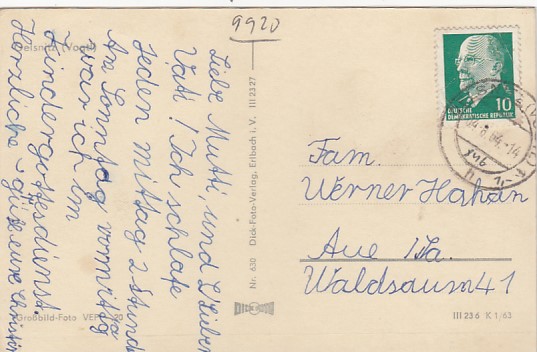 9920
Oelsnitz (Vogtl)
Liebe Mutti, und L Lieber
Vati! Ich schlafe
Jeden mittag 2 Stund
Am Sonntag vormittag
war ich im
Kindergottsdienst.
Herzliche Grüße eure Christin
Großbild-Foto VEB 20
Nr. 630 Dick-Foto-Verlag, Erlbach i. V. III 23 27
10
DEUTSCHE
DEMOKRATISCHE REPUBLIK
Fam.
Werner Hahan
Aue I/Sa.
Waldsaum 41
III 23 6 K 1/63